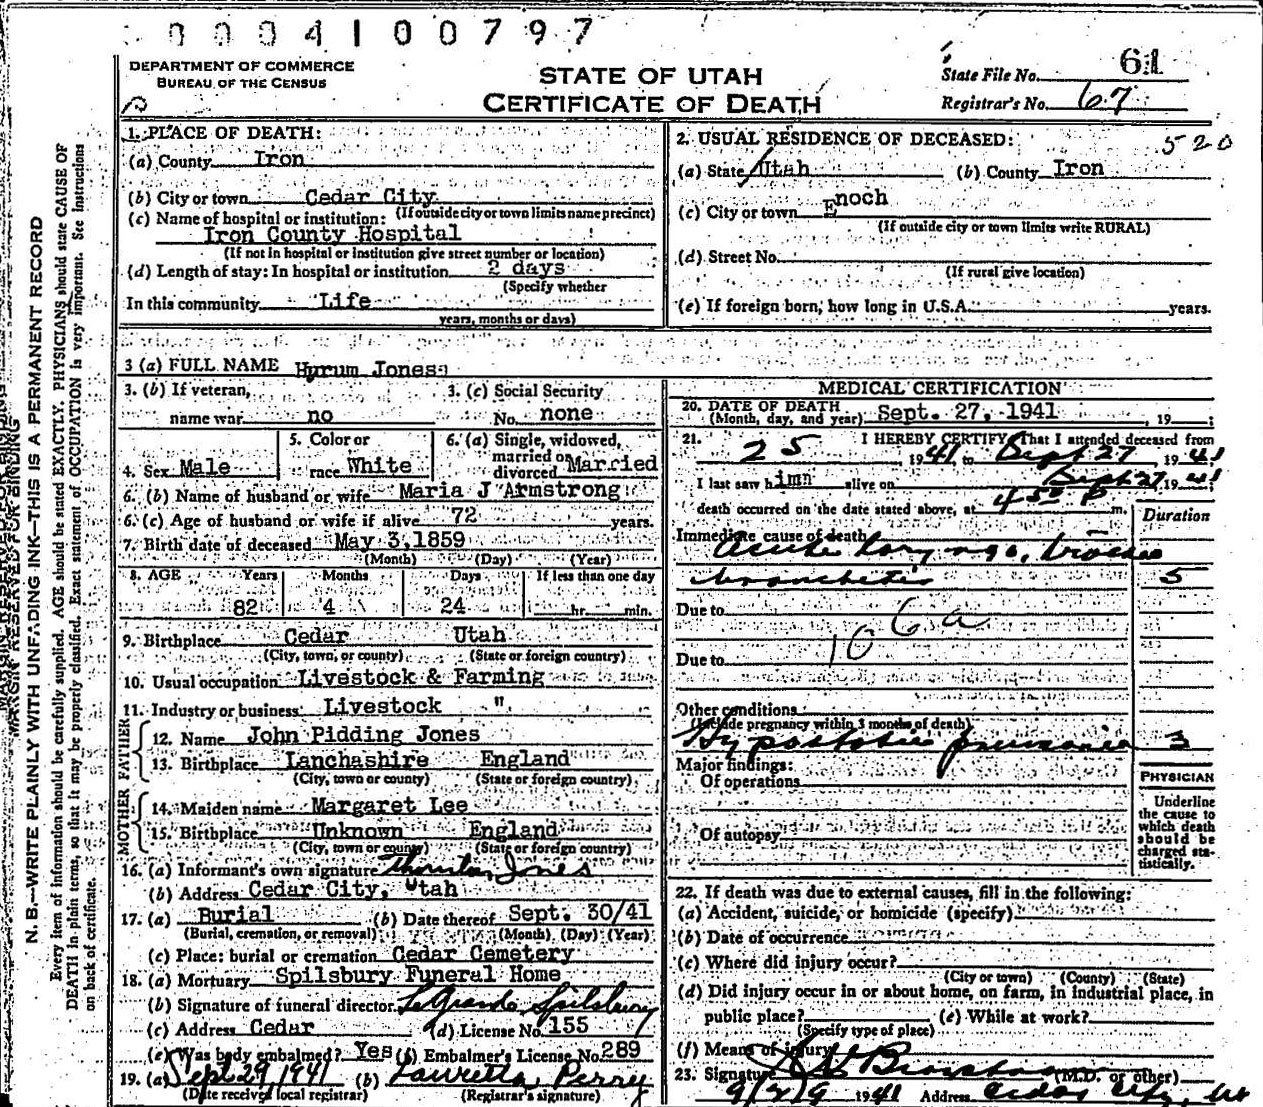 0004100797
DEPARTMENT OF COMMERCE
BUREAU OF THE CENSUS
STATE OF UTAH
CERTIFICATE OF DEATH
State File No. 61
Registrar's No. 67
1. PLACE OF DEATH:
(a) County Iron
(b) City or town Cedar City
(If outside city or town limits name precinct)
(c) Name of hospital or institution:
Iron County Hospital
(If not in hospital or institution give street number or location)
(d) Length of stay: In hospital or institution 2 days
(Specify whether
In this community Life
years, months or days)
2. USUAL RESIDENCE OF DECEASED: 520
(a) State Utah (b) County Iron
(c) City or town Enoch
(If outside city or town limits write RURAL)
(d) Street No.
(If rural give location)
(e) If foreign born, how long in U.S.A. years.
3 (a) FULL NAME Hyrum Jones
3. (b) If veteran, name war no
3. (c) Social Security No. none
4. Sex Male
5. Color or race White
6. (a) Single, widowed, married or divorced Married
6. (b) Name of husband or wife Maria J Armstrong
6. (c) Age of husband or wife if alive 72 years.
7. Birth date of deceased May 3, 1859
(Month) (Day) (Year)
8. AGE Years Months Days If less than one day
82 4 24 hr. min.
9. Birthplace Cedar Utah
(City, town, or county) (State or foreign country)
10. Usual occupation Livestock & Farming
11. Industry or business Livestock "
FATHER
12. Name John Pidding Jones
13. Birthplace Lanchashire England
(City, town or county) (State or foreign country)
MOTHER
14. Maiden name Margaret Lee
15. Birthplace Unknown England
(City, town or county) (State or foreign country)
16. (a) Informant's own signature Jones
(b) Address Cedar City, Utah
17. (a) Burial (b) Date thereof Sept. 30/41
(Burial, cremation, or removal) (Month) (Day) (Year)
(c) Place: burial or cremation Cedar Cemetery
18. (a) Mortuary Spilsbury Funeral Home
(b) Signature of funeral director LeGrande Spilsbury
(c) Address Cedar (d) License No. 155
(e) Was body embalmed? Yes (f) Embalmer's License No. 289
19. (a) Sept 29, 1941 (b) Lauretta Perry
(Date received local registrar) (Registrar's signature)
MEDICAL CERTIFICATION
20. DATE OF DEATH
(Month, day, and year) Sept. 27, 1941, 19
21. I HEREBY CERTIFY, That I attended deceased from
25 1941 to Sept 27 1941
I last saw him alive on Sept 27 1941;
death occurred on the date stated above, at 4 50 P m.
Duration
Immediate cause of death
Acute
5
Due to
106a
Due to
Other conditions
(Include pregnancy within 3 months of death)
Hypostatic pneumonia 3
Major findings:
Of operations
Of autopsy
PHYSICIAN
Underline
the cause to
which death
should be
charged sta-
tistically.
22. If death was due to external causes, fill in the following:
(a) Accident, suicide, or homicide (specify)
(b) Date of occurrence
(c) Where did injury occur?
(City or town) (County) (State)
(d) Did injury occur in or about home, on farm, in industrial place, in
public place? (e) While at work?
(Specify type of place)
(f) Means of injury
23. Signature (M.D. or other)
9/29 1941 Address Cedar City, Ut
N. B.—WRITE PLAINLY WITH UNFADING INK—THIS IS A PERMANENT RECORD
MARGIN RESERVED FOR BINDING
Every item of information should be carefully supplied. AGE should be stated EXACTLY. PHYSICIANS should state CAUSE OF
DEATH in plain terms, so that it may be properly classified. Exact statement of OCCUPATION is very important. See Instructions
on back of certificate.